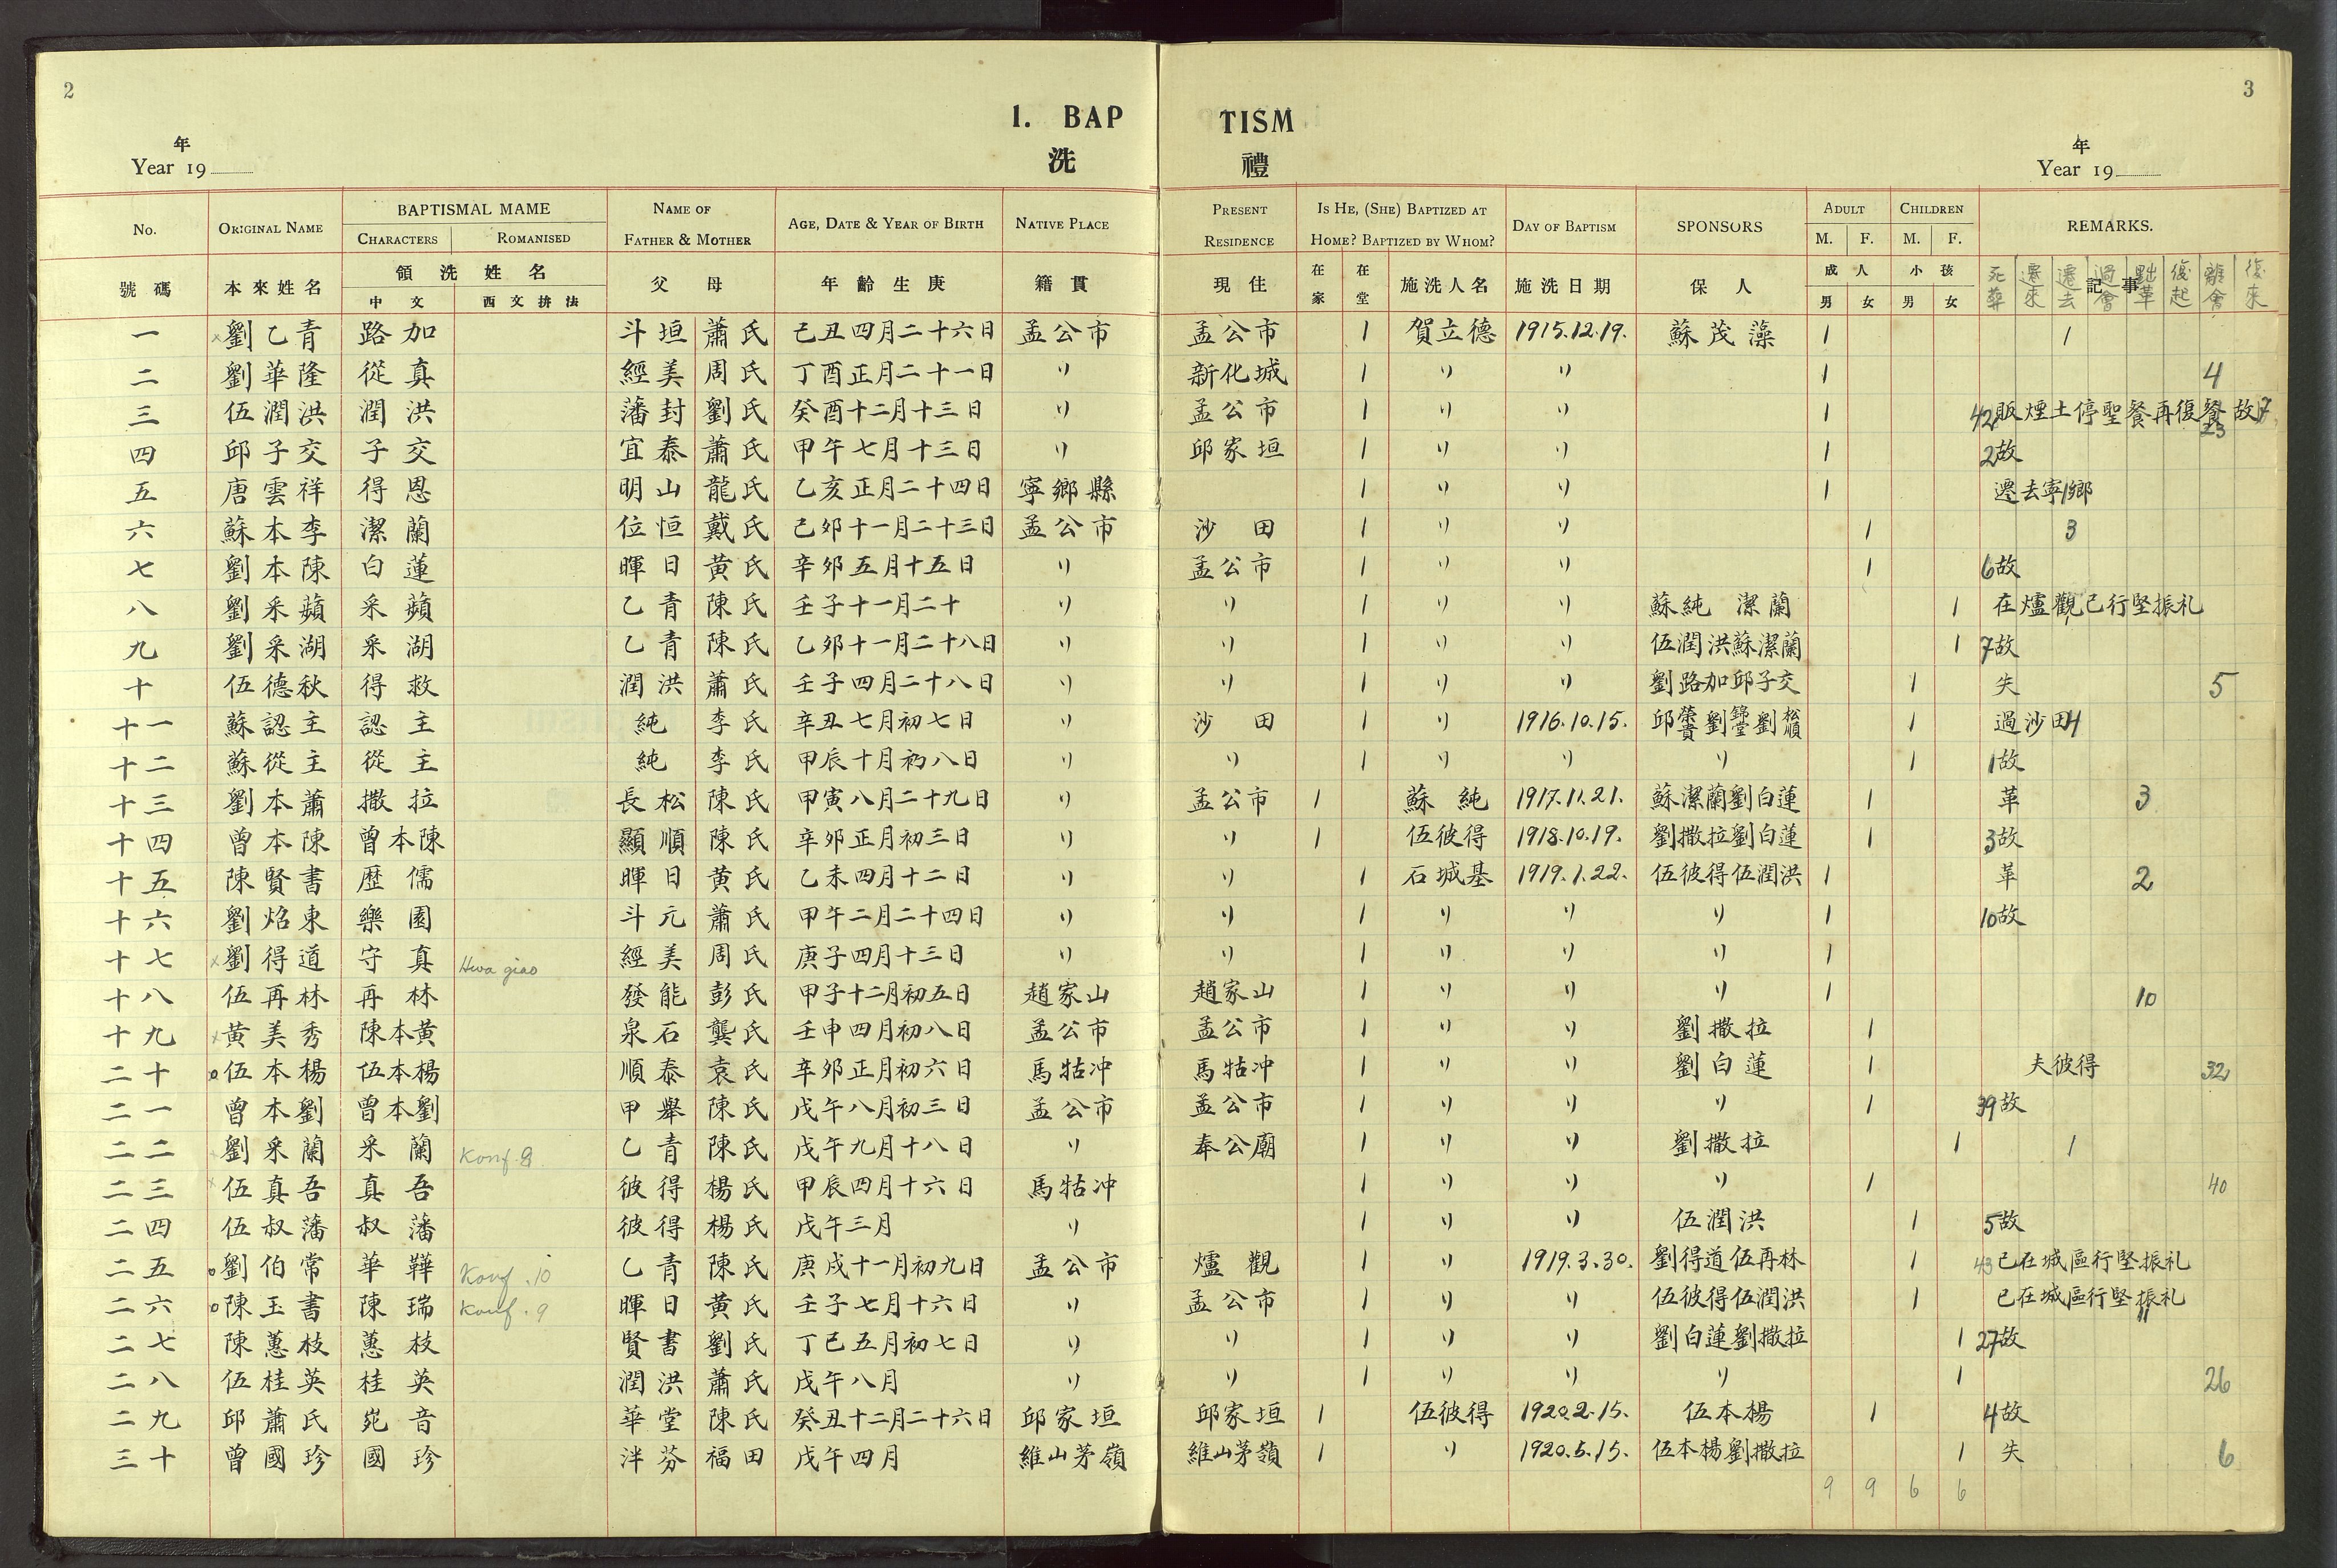 2
3
1. BAP TISM
洗 禮
年
Year 19
年
Year 19
No. ORIGINAL NAME BAPTISMAL MAME CHARACTERS ROMANISED NAME OF FATHER & MOTHER AGE, DATE & YEAR OF BIRTH NATIVE PLACE PRESENT RESIDENCE IS HE, (SHE) BAPTIZED AT HOME? BAPTIZED BY WHOM? DAY OF BAPTISM SPONSORS ADULT M. F. CHILDREN M. F. REMARKS.
號碼 本來姓名 領洗姓名 中文 西文拚法 父 母 年齡生庚 籍貫 現住 在家 在堂 施洗人名 施洗日期 保人 成人 男 女 小孩 男 女 記事 死葬 遷來 遷去 過會 黜革 復起 離會 復來
一 x劉乙青 路加 斗垣 蕭氏 己丑四月二十六日 孟公市 孟公市 1 賀立德 1915.12.19. 蘇茂藻 1 1
二 劉華隆 從真 經美 周氏 丁酉正月二十一日 〃 新化城 1 〃 〃 1 4
三 伍潤洪 潤洪 藩封 劉氏 癸酉十二月十三日 〃 孟公市 1 〃 〃 1 42 販煙土停聖餐再復餐 故7
四 邱子交 子交 宜泰 蕭氏 甲午七月十三日 〃 邱家垣 1 〃 〃 1 2故 23
五 唐雲祥 得恩 明山 龍氏 乙亥正月二十四日 寧鄉縣 1 〃 〃 1 遷去寧鄉 1
六 蘇本李 潔蘭 位恒 戴氏 己卯十一月二十三日 孟公市 沙田 1 〃 〃 1 3
七 劉本陳 白蓮 暉日 黃氏 辛卯五月十五日 〃 孟公市 1 〃 〃 1 6故
八 劉采蘋 采蘋 乙青 陳氏 壬子十一月二十 〃 〃 1 〃 〃 蘇純 潔蘭 1 在爐觀已行堅振礼
九 劉采湖 采湖 乙青 陳氏 乙卯十一月二十八日 〃 〃 1 〃 〃 伍潤洪蘇潔蘭 1 7故
十 伍德秋 得救 潤洪 蕭氏 壬子四月二十八日 〃 〃 1 〃 〃 劉路加邱子交 1 失 5
十一 蘇認主 認主 純 李氏 辛丑七月初七日 〃 沙田 1 〃 1916.10.15. 邱榮貴劉錦堂劉松順 1 過沙田 4
十二 蘇從主 從主 純 李氏 甲辰十月初八日 〃 〃 1 〃 〃 〃 1 1故
十三 劉本蕭 撒拉 長松 陳氏 甲寅八月二十九日 〃 孟公市 1 蘇純 1917.11.21. 蘇潔蘭劉白蓮 1 革 3
十四 曾本陳 曾本陳 顯順 陳氏 辛卯正月初三日 〃 〃 1 伍彼得 1918.10.19. 劉撒拉劉白蓮 1 3故
十五 陳賢書 歷儒 暉日 黃氏 乙未四月十二日 〃 〃 1 石城基 1919.1.22. 伍彼得伍潤洪 1 革 2
十六 劉炤東 樂園 斗元 蕭氏 甲午二月二十四日 〃 〃 1 〃 〃 〃 1 10故
十七 x劉得道 守真 Hwa giao 經美 周氏 庚子四月十三日 〃 〃 1 〃 〃 〃 1
十八 伍再林 再林 發能 彭氏 甲子十二月初五日 趙家山 趙家山 1 〃 〃 〃 1 10
十九 x黃美秀 陳本黃 泉石 龔氏 壬申四月初八日 孟公市 孟公市 1 〃 〃 劉撒拉 1
二十 伍本楊 伍本楊 順泰 袁氏 辛卯正月初六日 馬牯冲 馬牯冲 1 〃 〃 劉白蓮 1 夫彼得 32
二一 曾本劉 曾本劉 甲舉 陳氏 戊午八月初三日 孟公市 孟公市 1 〃 〃 〃 1 39故
二二 劉采蘭 采蘭 Konf. 乙青 陳氏 戊午九月十八日 〃 奉公廟 1 〃 〃 劉撒拉 1 1
二三 x伍真吾 真吾 彼得 楊氏 甲辰四月十六日 馬牯冲 1 〃 〃 〃 1 40
二四 伍叔藩 叔藩 彼得 楊氏 戊午三月 〃 1 〃 〃 伍潤洪 1 5故
二五 o劉伯常 華鞾 Konf. 10 乙青 陳氏 庚戌十一月初九日 孟公市 爐觀 1 〃 1919.3.30. 劉得道伍再林 1 43 已在城區行堅振礼
二六 o陳玉書 陳瑞 Konf. 9 暉日 黃氏 壬子七月十六日 〃 孟公市 1 〃 〃 伍彼得伍潤洪 1 已在城區行堅振礼 11
二七 陳蕙枝 蕙枝 賢書 劉氏 丁巳五月初七日 〃 〃 1 〃 〃 劉白蓮劉撒拉 1 27故
二八 伍桂英 桂英 潤洪 蕭氏 戊午八月 〃 〃 1 〃 〃 〃 1 26
二九 邱蕭氏 宛音 華堂 陳氏 癸丑十二月二十六日 邱家垣 邱家垣 1 伍彼得 1920.2.15. 伍本楊 1 4故
三十 曾國珍 國珍 泮芬 福田 戊午四月 維山茅嶺 維山茅嶺 1 〃 1920.5.15. 伍本楊劉撒拉 1 失 6
9 9 6 6